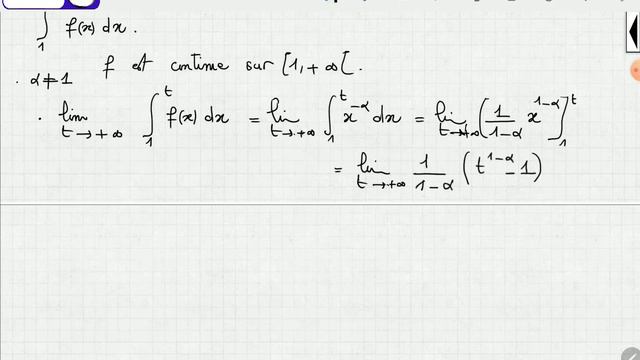 ∫₁ f(x) dx.
f est continue sur [1, +∞[.
. α≠1
. lim_{t→+∞} ∫₁ᵗ f(x) dx = lim_{t→+∞} ∫₁ᵗ x^{-α} dx = lim_{t→+∞} (1/(1-α) x^{1-α}]₁ᵗ
= lim_{t→+∞} 1/(1-α) (t^{1-α} - 1)